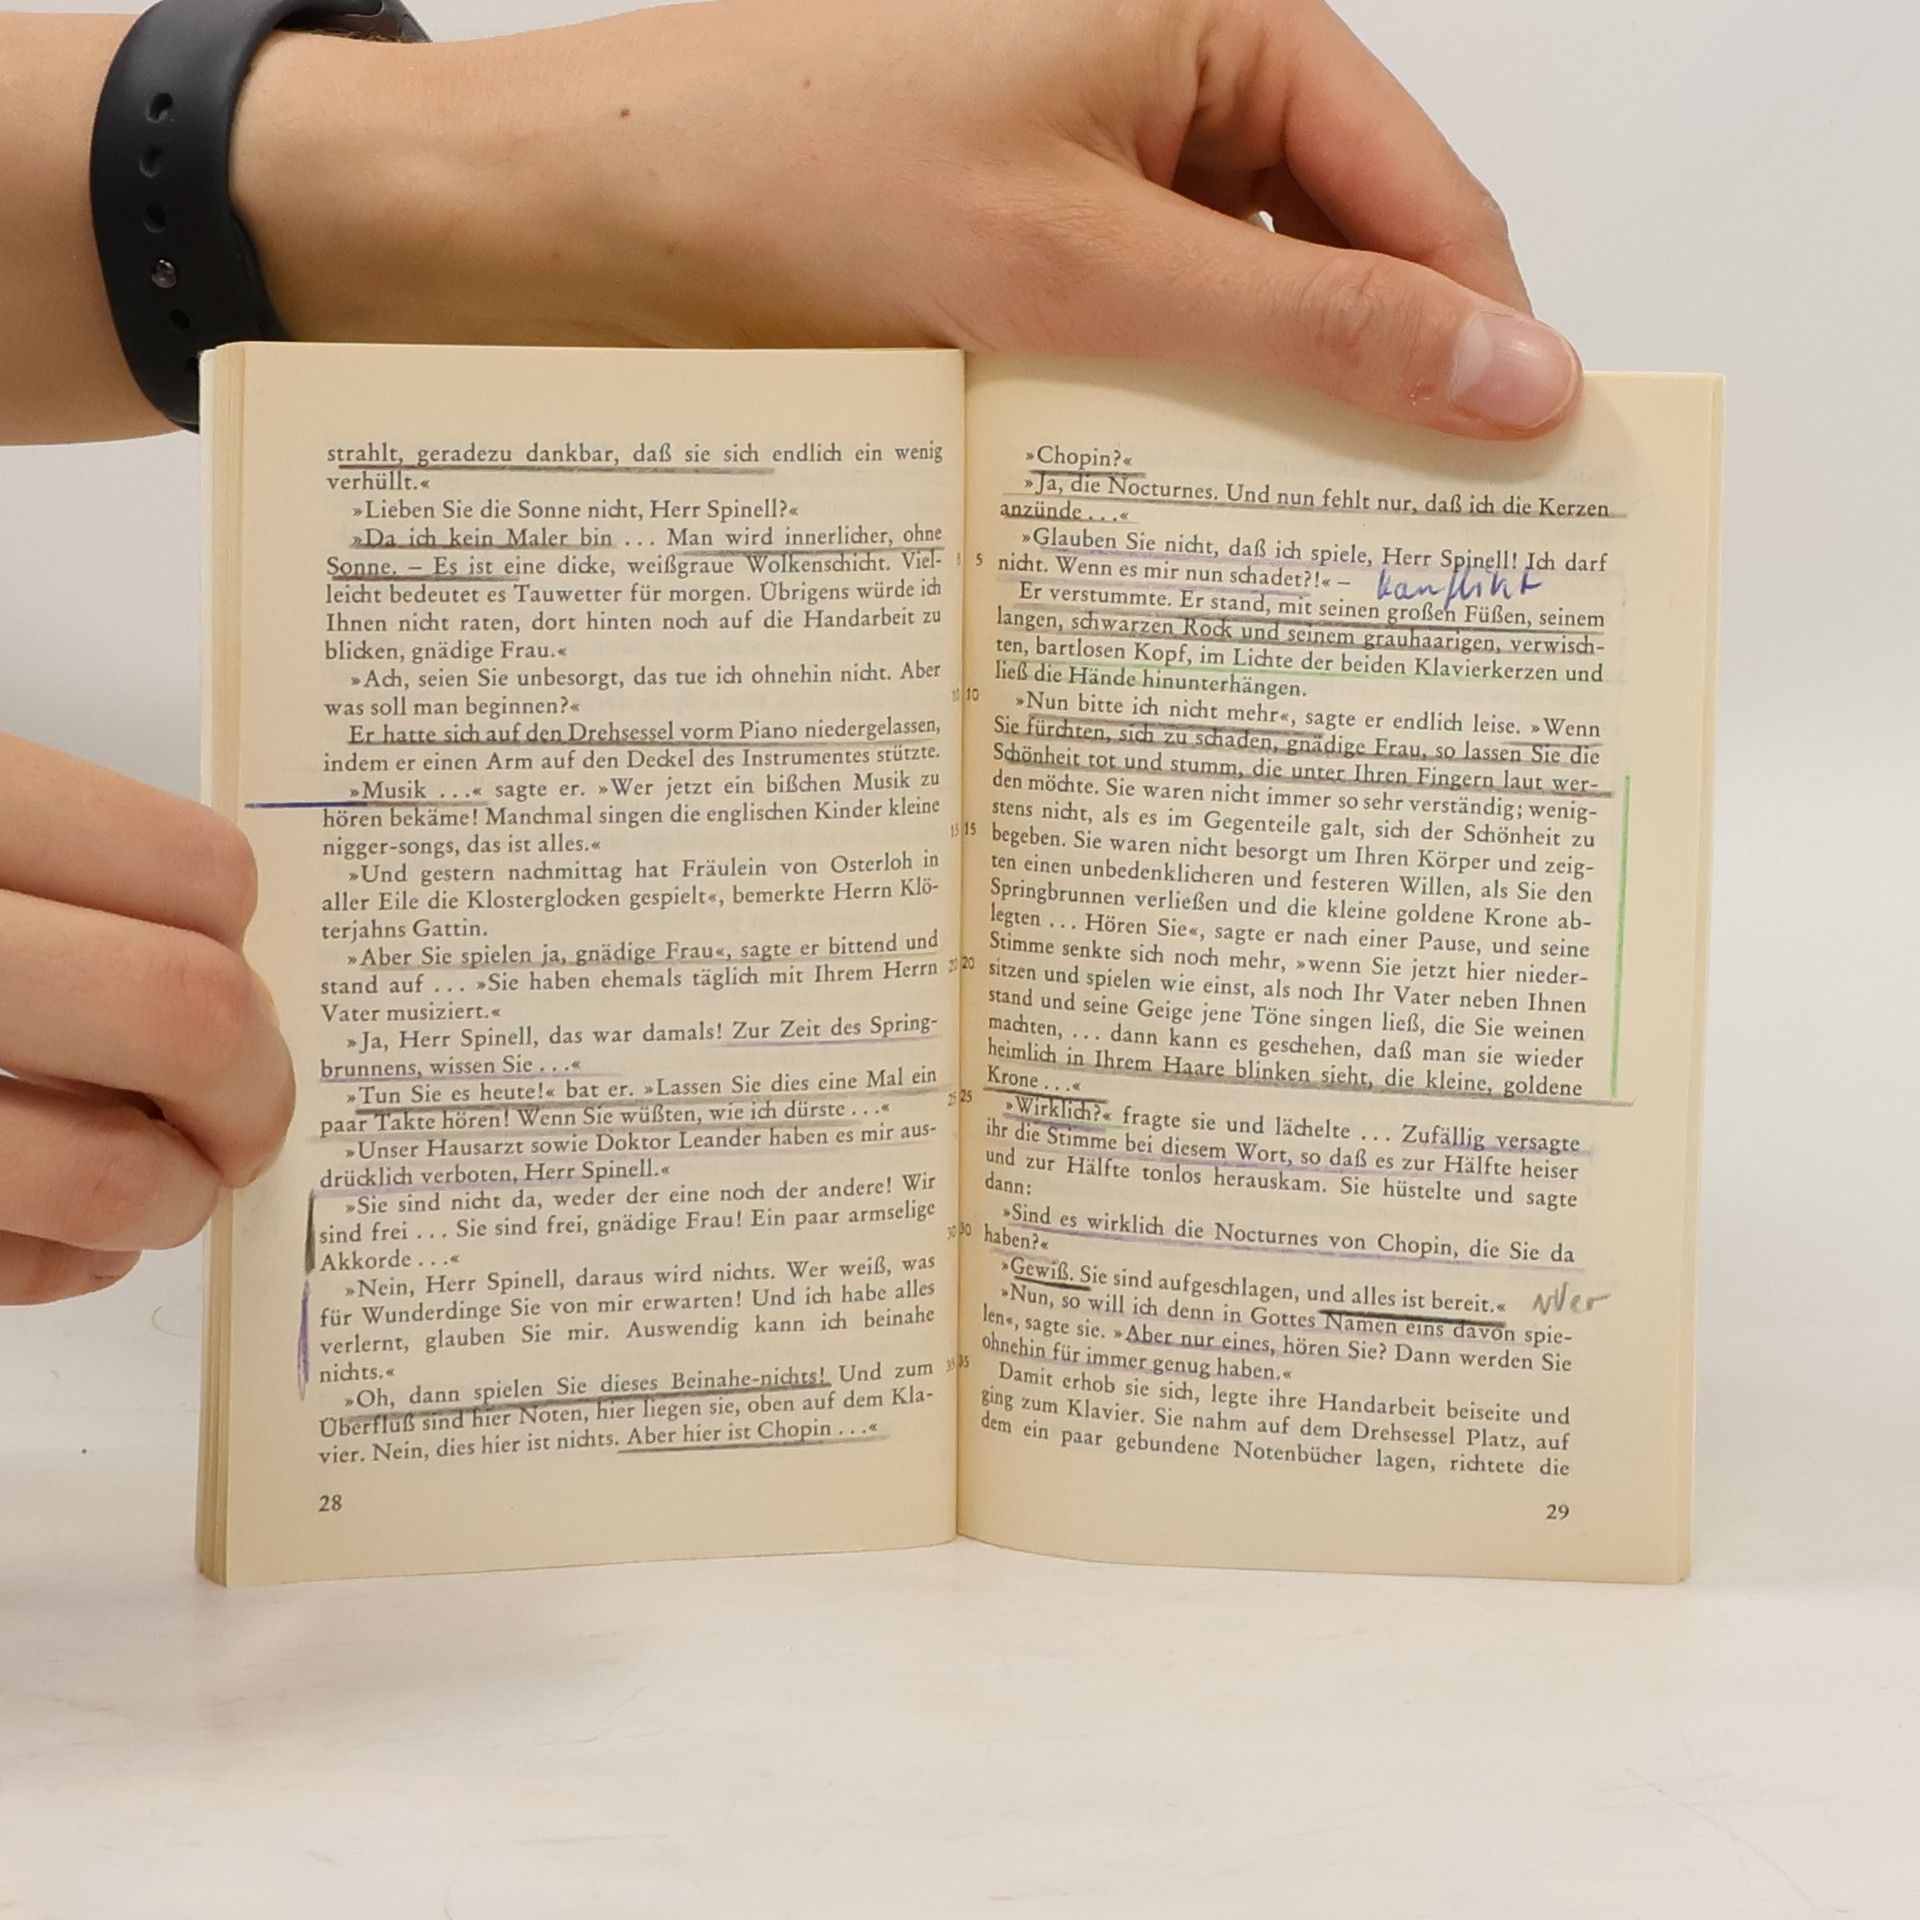 strahlt, geradezu dankbar, daß sie sich endlich ein wenig
verhüllt.«
»Lieben Sie die Sonne nicht, Herr Spinell?«
»Da ich kein Maler bin ... Man wird innerlicher, ohne
Sonne. – Es ist eine dicke, weißgraue Wolkenschicht. Viel-
leicht bedeutet es Tauwetter für morgen. Übrigens würde ich
Ihnen nicht raten, dort hinten noch auf die Handarbeit zu
blicken, gnädige Frau.«
»Ach, seien Sie unbesorgt, das tue ich ohnehin nicht. Aber
was soll man beginnen?«
Er hatte sich auf den Drehsessel vorm Piano niedergelassen,
indem er einen Arm auf den Deckel des Instrumentes stützte.
»Musik ...« sagte er. »Wer jetzt ein bißchen Musik zu
hören bekäme! Manchmal singen die englischen Kinder kleine
nigger-songs, das ist alles.«
»Und gestern nachmittag hat Fräulein von Osterloh in
aller Eile die Klosterglocken gespielt«, bemerkte Herrn Klö-
terjahns Gattin.
»Aber Sie spielen ja, gnädige Frau«, sagte er bittend und
stand auf ... »Sie haben ehemals täglich mit Ihrem Herrn
Vater musiziert.«
»Ja, Herr Spinell, das war damals! Zur Zeit des Spring-
brunnens, wissen Sie ...«
»Tun Sie es heute!« bat er. »Lassen Sie dies eine Mal ein
paar Takte hören! Wenn Sie wüßten, wie ich dürste ...«
»Unser Hausarzt sowie Doktor Leander haben es mir aus-
drücklich verboten, Herr Spinell.«
»Sie sind nicht da, weder der eine noch der andere! Wir
sind frei ... Sie sind frei, gnädige Frau! Ein paar armselige
Akkorde ...«
»Nein, Herr Spinell, daraus wird nichts. Wer weiß, was
für Wunderdinge Sie von mir erwarten! Und ich habe alles
verlernt, glauben Sie mir. Auswendig kann ich beinahe
nichts.«
»Oh, dann spielen Sie dieses Beinahe-nichts! Und zum
Überfluß sind hier Noten, hier liegen sie, oben auf dem Kla-
vier. Nein, dies hier ist nichts. Aber hier ist Chopin ...«
28
5
10
15
20
25
30
35
»Chopin?«
»Ja, die Nocturnes. Und nun fehlt nur, daß ich die Kerzen
anzünde ...«
»Glauben Sie nicht, daß ich spiele, Herr Spinell! Ich darf
5 nicht. Wenn es mir nun schadet?!« – Konflikt
Er verstummte. Er stand, mit seinen großen Füßen, seinem
langen, schwarzen Rock und seinem grauhaarigen, verwisch-
ten, bartlosen Kopf, im Lichte der beiden Klavierkerzen und
ließ die Hände hinunterhängen.
10 »Nun bitte ich nicht mehr«, sagte er endlich leise. »Wenn
Sie fürchten, sich zu schaden, gnädige Frau, so lassen Sie die
Schönheit tot und stumm, die unter Ihren Fingern laut wer-
den möchte. Sie waren nicht immer so sehr verständig; wenig-
stens nicht, als es im Gegenteile galt, sich der Schönheit zu
15 begeben. Sie waren nicht besorgt um Ihren Körper und zeig-
ten einen unbedenklicheren und festeren Willen, als Sie den
Springbrunnen verließen und die kleine goldene Krone ab-
legten ... Hören Sie«, sagte er nach einer Pause, und seine
Stimme senkte sich noch mehr, »wenn Sie jetzt hier nieder-
20 sitzen und spielen wie einst, als noch Ihr Vater neben Ihnen
stand und seine Geige jene Töne singen ließ, die Sie weinen
machten, ... dann kann es geschehen, daß man sie wieder
heimlich in Ihrem Haare blinken sieht, die kleine, goldene
Krone ...«
25 »Wirklich?« fragte sie und lächelte ... Zufällig versagte
ihr die Stimme bei diesem Wort, so daß es zur Hälfte heiser
und zur Hälfte tonlos herauskam. Sie hüstelte und sagte
dann:
»Sind es wirklich die Nocturnes von Chopin, die Sie da
30 haben?«
»Gewiß. Sie sind aufgeschlagen, und alles ist bereit.«
»Nun, so will ich denn in Gottes Namen eins davon spie-
len«, sagte sie. »Aber nur eines, hören Sie? Dann werden Sie
ohnehin für immer genug haben.«
35 Damit erhob sie sich, legte ihre Handarbeit beiseite und
ging zum Klavier. Sie nahm auf dem Drehsessel Platz, auf
dem ein paar gebundene Notenbücher lagen, richtete die
29